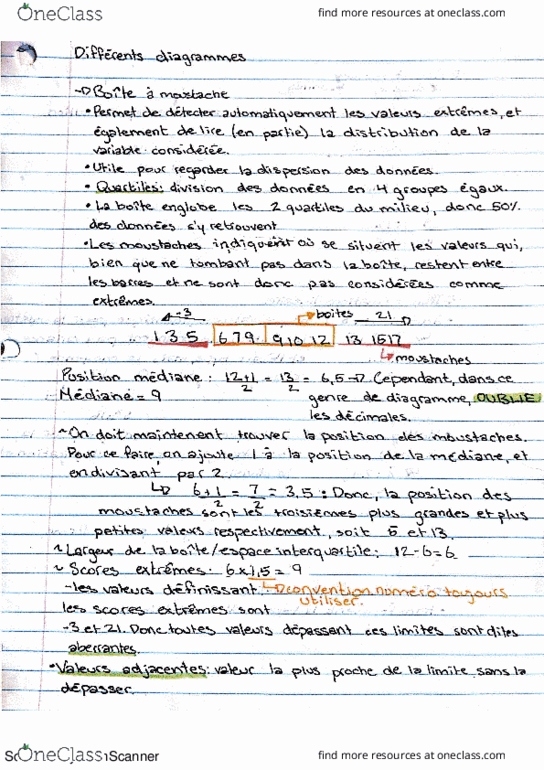 OneClass
find more resources at oneclass.com
Différents diagrammes
→ Boîte à moustache
• Permet de détecter automatiquement les valeurs extrêmes, et
également de lire (en partie) la distribution de la
variable considérée.
• Utile pour regarder la dispersion des données.
• Quartiles: division des données en 4 groupes égaux.
• La boîte englobe les 2 quartiles du milieu, donc 50%
des données s'y retrouvent
• Les moustaches indiquent où se situent les valeurs qui,
bien que ne tombant pas dans la boîte, restent entre
les barres et ne sont donc pas considérées comme
extrêmes.
-3 boîtes 21
1 3 5 6 7 9 9 10 12 13 15 17
moustaches
Position médiane: 12+1/2 = 13/2 = 6,5 → Cependant, dans ce
Médiane = 9 genre de diagramme, OUBLIE
les décimales.
~ On doit maintenant trouver la position des moustaches.
Pour ce faire, on ajoute 1 à la position de la médiane, et
en divisant par 2.
↳ 6+1/2 = 7/2 = 3,5 : Donc, la position des
moustaches sont les troisièmes plus grandes et plus
petites valeurs respectivement, soit 5 et 13.
~ Largeur de la boîte/espace interquartile: 12-6=6
~ Scores extrêmes: 6x1,5 = 9
- les valeurs définissant → convention numéro toujours
utiliser.
les scores extrêmes sont
-3 et 21. Donc toutes valeurs dépassant ces limites sont dites
aberrantes.
• Valeurs adjacentes: valeur la plus proche de la limite, sans la
dépasser.
OneClass Scanner
find more resources at oneclass.com